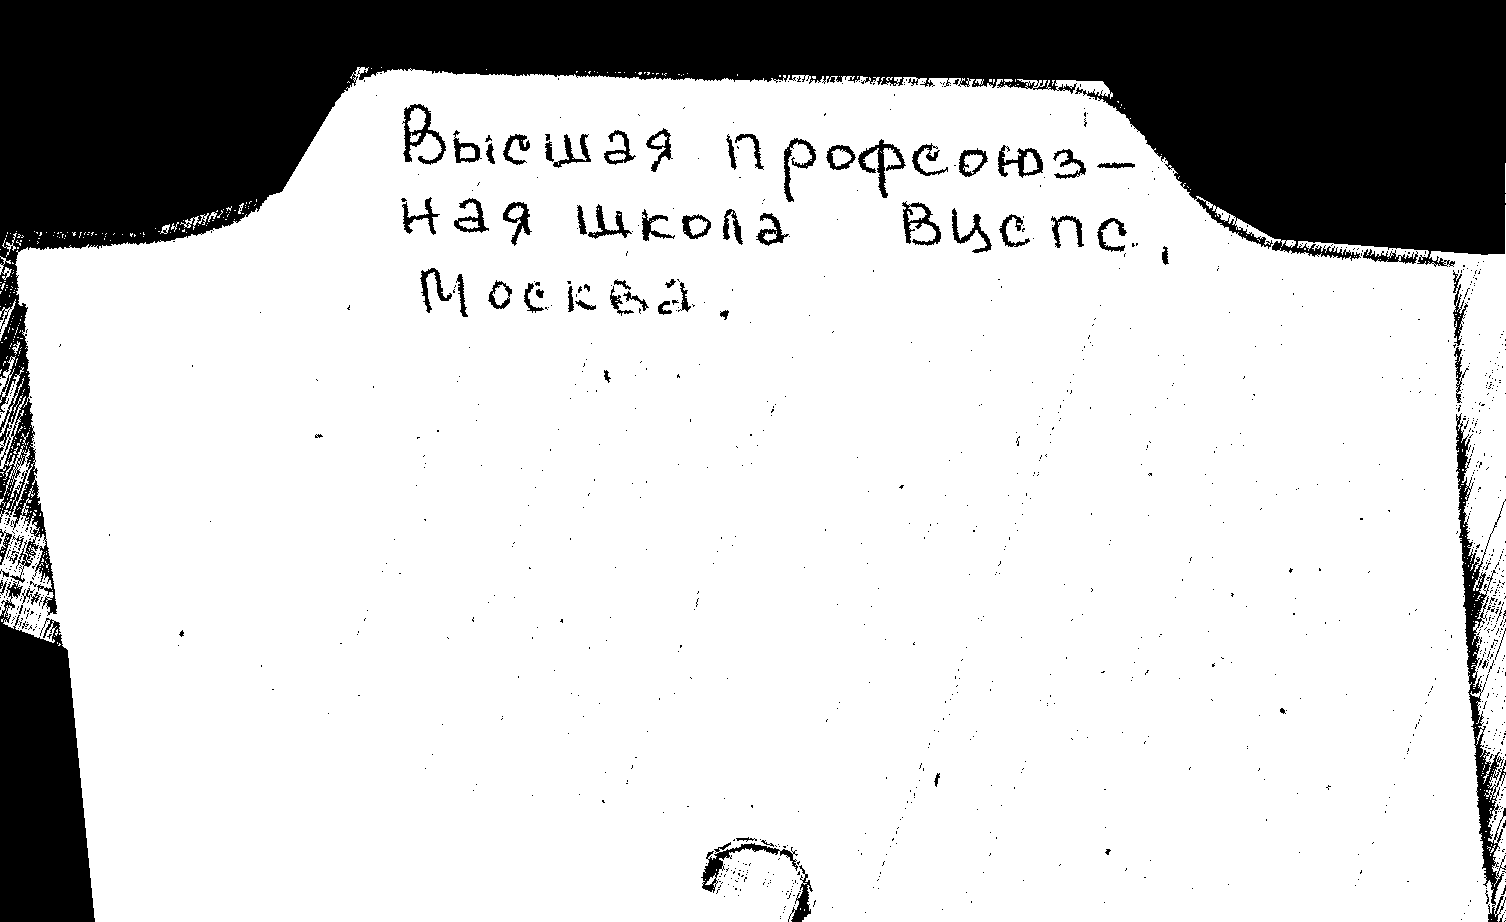 Высшая профсоюз-
ная школа ВЦСПС,
Москва.